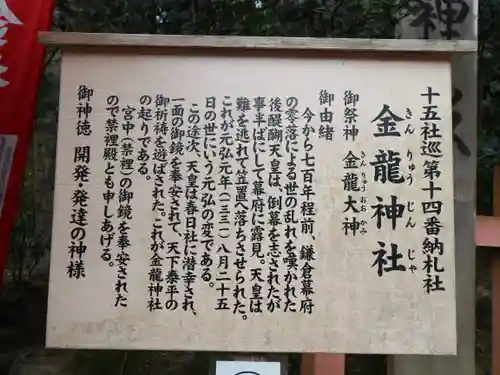 十五社巡第十四番納札社
金龍神社
きんりゅうじんじゃ
御祭神 金龍大神
きんりゅうおおかみ
御由緒
今から七百年程前、鎌倉幕府
の零落による世の乱れを嘆かれた
後醍醐天皇は、倒幕を志されたが
事半ばにして幕府に露見。天皇は
難を逃れて笠置へ落ちさせられた。
これが元弘元年(一三三一)八月二十五
日の世にいう元弘の変である。
この途次、天皇は春日社に潜幸され、
一面の御鏡を奉安されて、天下泰平の
御祈祷を遊ばされた。これが金龍神社
の起りである。
宮中(禁裡)の御鏡を奉安された
ので禁裡殿とも申しあげる。
御神徳 開発・発達の神様
神